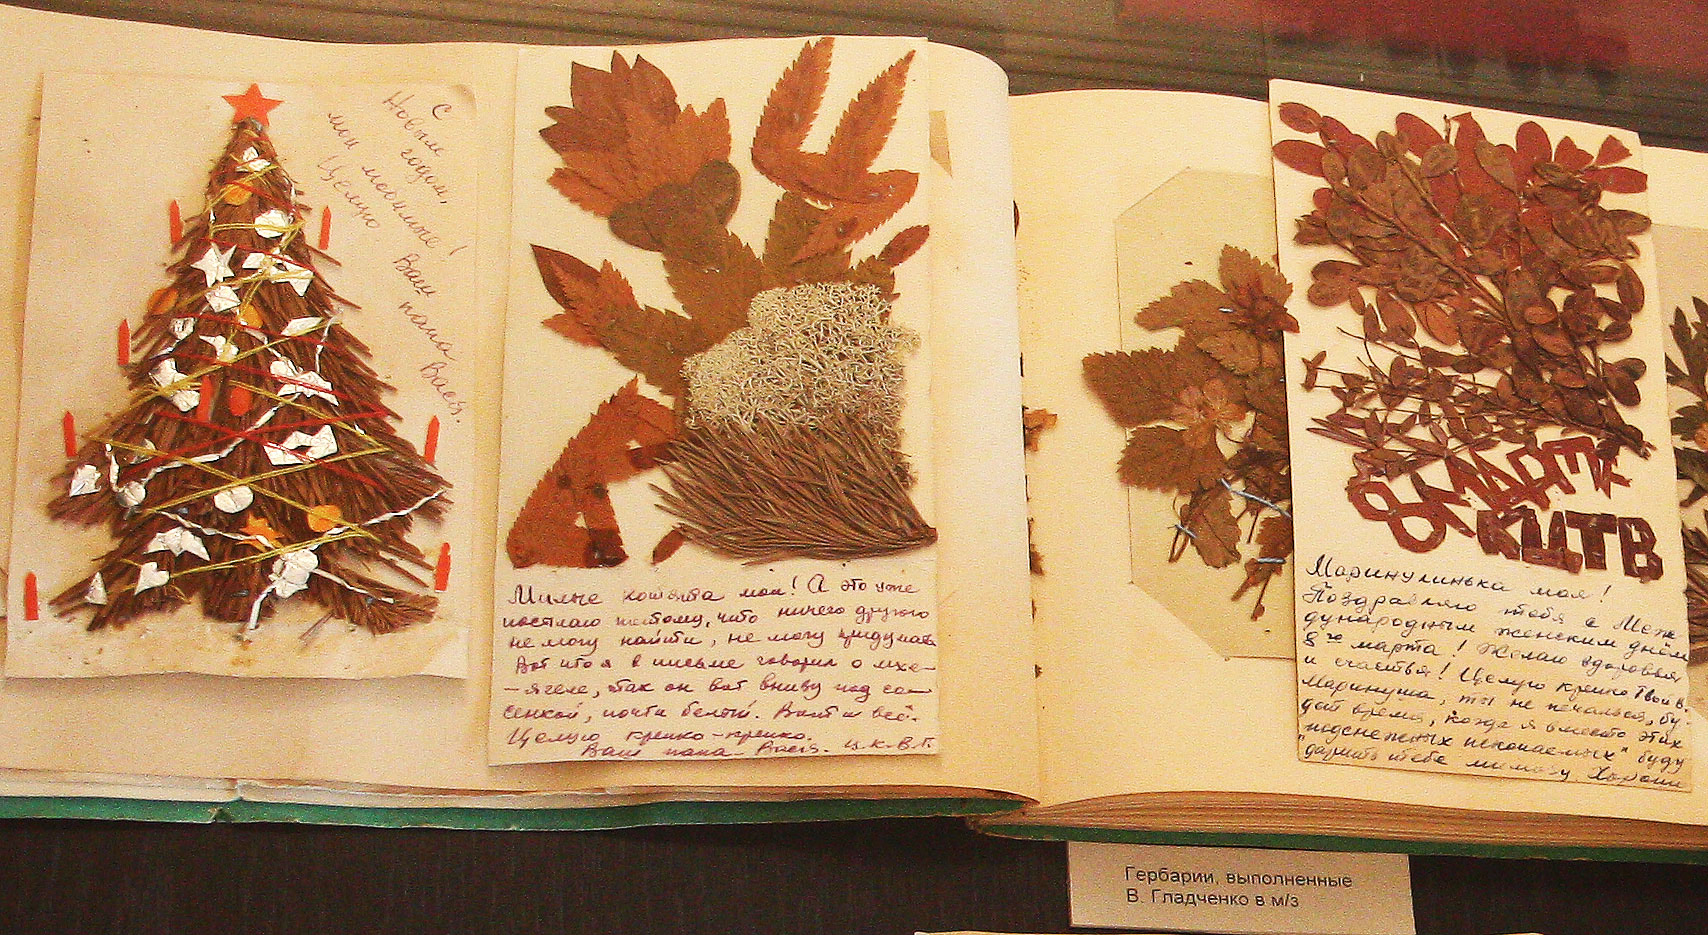 С
Новым
годом,
мои любимые!
Целую Ваш папа Вася.
Милые котята мои! А это уже
посылаю потому, что ничего другого
не могу найти, не могу придумать
Вот что я в письме говорил о мхе-
-ягеле, так он вот внизу над со-
сенкой, почти белый. Вот и всё.
Целую крепко-крепко.
Ваш папа-Вася. Ц.К.В.П.
8 МАРТА
Маринулинька моя!
Поздравляю тебя с Меж
дународным женским днём
8го марта! Желаю здоровья
и счастья! Целую крепко Твой В.
Маринуша, ты не печалься, бу-
дет время, когда я вместо этих
"подснежных ископаемых" буду
дарить тебе мимозу. Хороши
Гербарии, выполненные
В. Гладченко в м/з